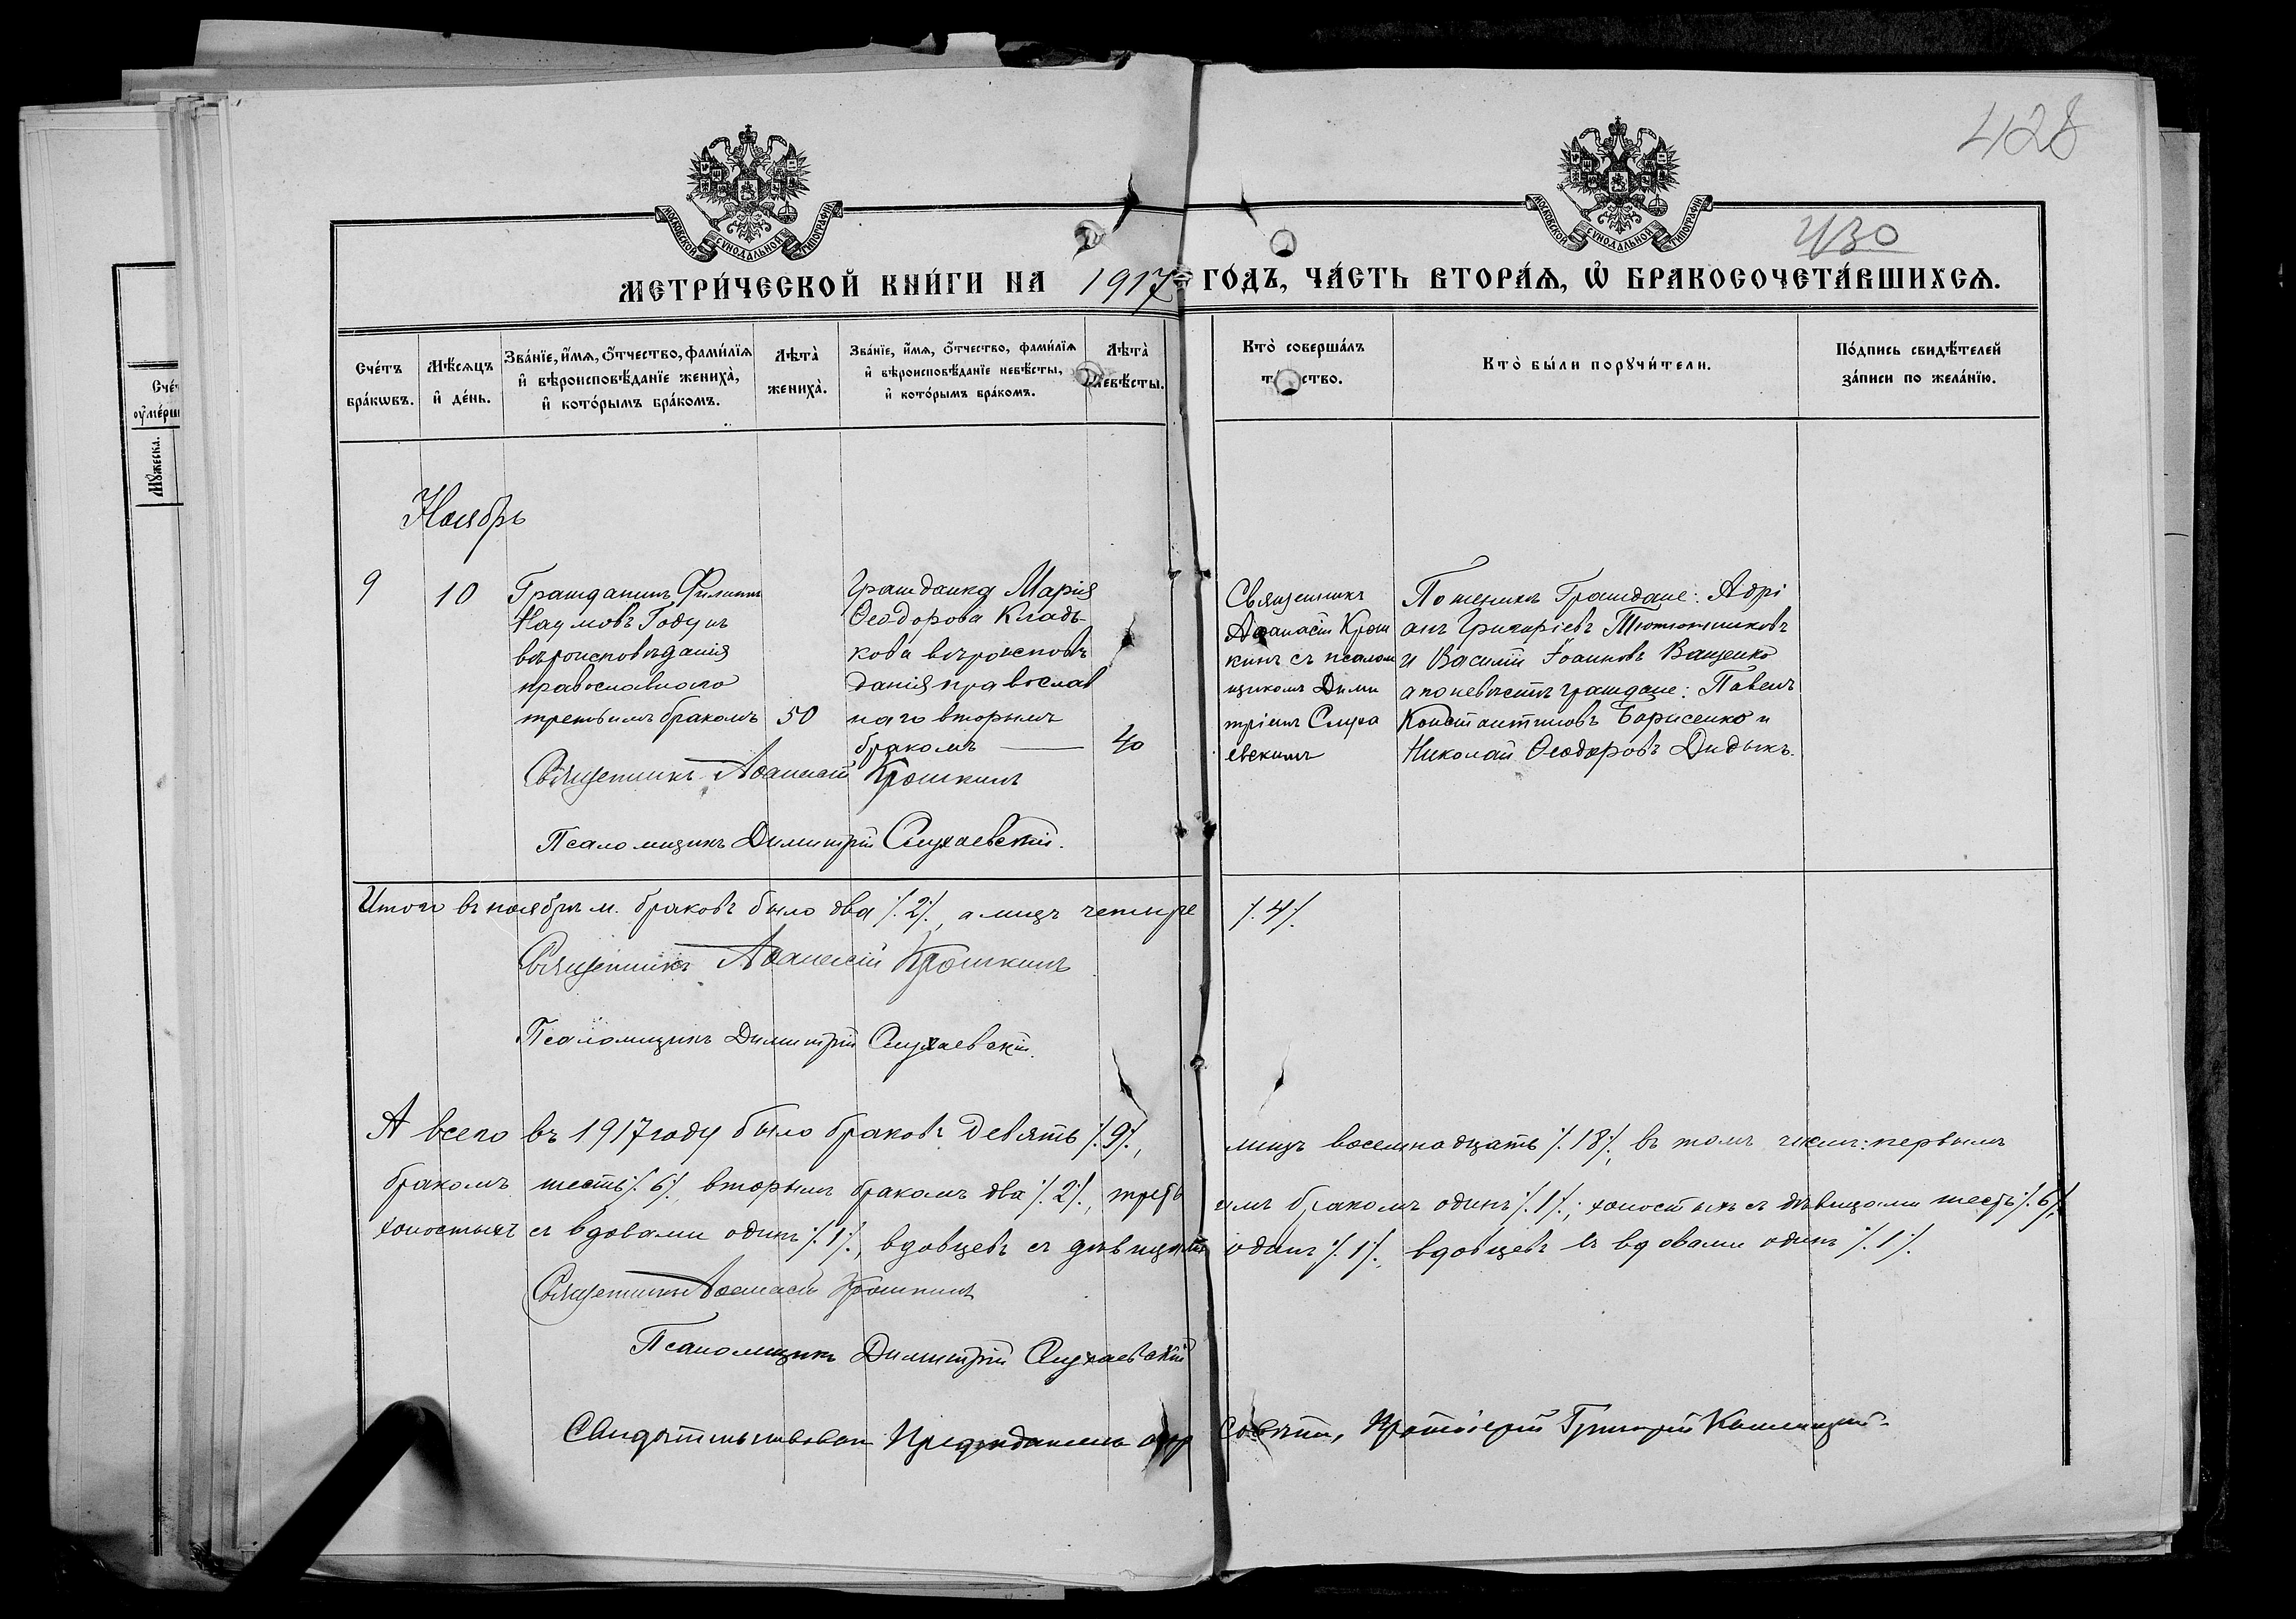 428
430
МОСКОВСКОЙ СѴНОДАЛЬНОЙ ТИПОГРАФІИ
МОСКОВСКОЙ СѴНОДАЛЬНОЙ ТИПОГРАФІИ
МЕТРИ́ЧЕСКОЙ КНИ́ГИ НА 1917 ГО́ДЪ, ЧА́СТЬ ВТОРА́Ѧ, Ѽ БРАКОСОЧЕТА́ВШИХСѦ.
Сче́тъ бра́кωвъ.
Мѣ́сяцъ и҆ де́нь.
Зва́нїе, и҆́мѧ, ѻ҆́тчество, фами́лїѧ
и҆ вѣроисповѣ́данїе жениха̀,
и҆ кото́рымъ бра́комъ.
Лѣта̀ жениха̀.
Зва́нїе, и҆́мѧ, ѻ҆́тчество, фами́лїѧ
и҆ вѣроисповѣ́данїе невѣ́сты,
и҆ кото́рымъ бра́комъ.
Лѣта̀ невѣ́сты.
Кто̀ соверша́лъ
та́ ство.
Кто̀ бы́ли порꙋчи́тели.
По́дпись свидѣ́телей
за́писи по жела́нїю.
Сче́
ᲂу҆ме́рш
Мꙋ́жеска.
Ноябрь
9
10
Гражданинъ Филиппъ
Наумовъ Годунъ
вѣроисповѣданія
православного
третьимъ бракомъ
50
Гражданка Марія
Ѳеодорова Кладь-
кова вѣроисповѣ
данія православ
наго вторымъ
бракомъ
40
Священникъ
Аѳанасій Крош
кинъ съ псалом
щикомъ Дими
тріемъ Слуха
евскимъ
По женихѣ Граждане: Адрі
анъ Григоріевъ Тютюнниковъ
и Василій Іоанновъ Ващенко
а по невѣстѣ граждане: Павелъ
Константиновъ Борисенко и
Николай Ѳеодоровъ Дидыкъ.
Священникъ Аѳанасій Крошкинъ
Псаломщикъ Димитрій Слухаевскій.
Итого въ ноябрѣ м. браковъ было два /.2/., а лицъ четыре /.4/.
Священникъ Аѳанасій Крошкинъ
Псаломщикъ Димитрій Слухаевскій.
А всего въ 1917 году было браковъ девять /.9/., лицъ восемнадцать /.18/., въ томъ числѣ: первымъ
бракомъ шесть /.6/., вторымъ бракомъ два /.2/., третьимъ бракомъ одинъ /.1/.; холостыхъ съ дѣвицами шесть /.6/.,
холостыхъ съ вдовами одинъ /.1/., вдовцевъ съ дѣвицами одинъ /.1/., вдовцевъ съ вдовами одинъ /.1/.
Священникъ Аѳанасій Крошкинъ
Псаломщикъ Димитрій Слухаевскій
Свидѣтельствовалъ Предсѣдатель Совѣта, Протоіерей Григорій